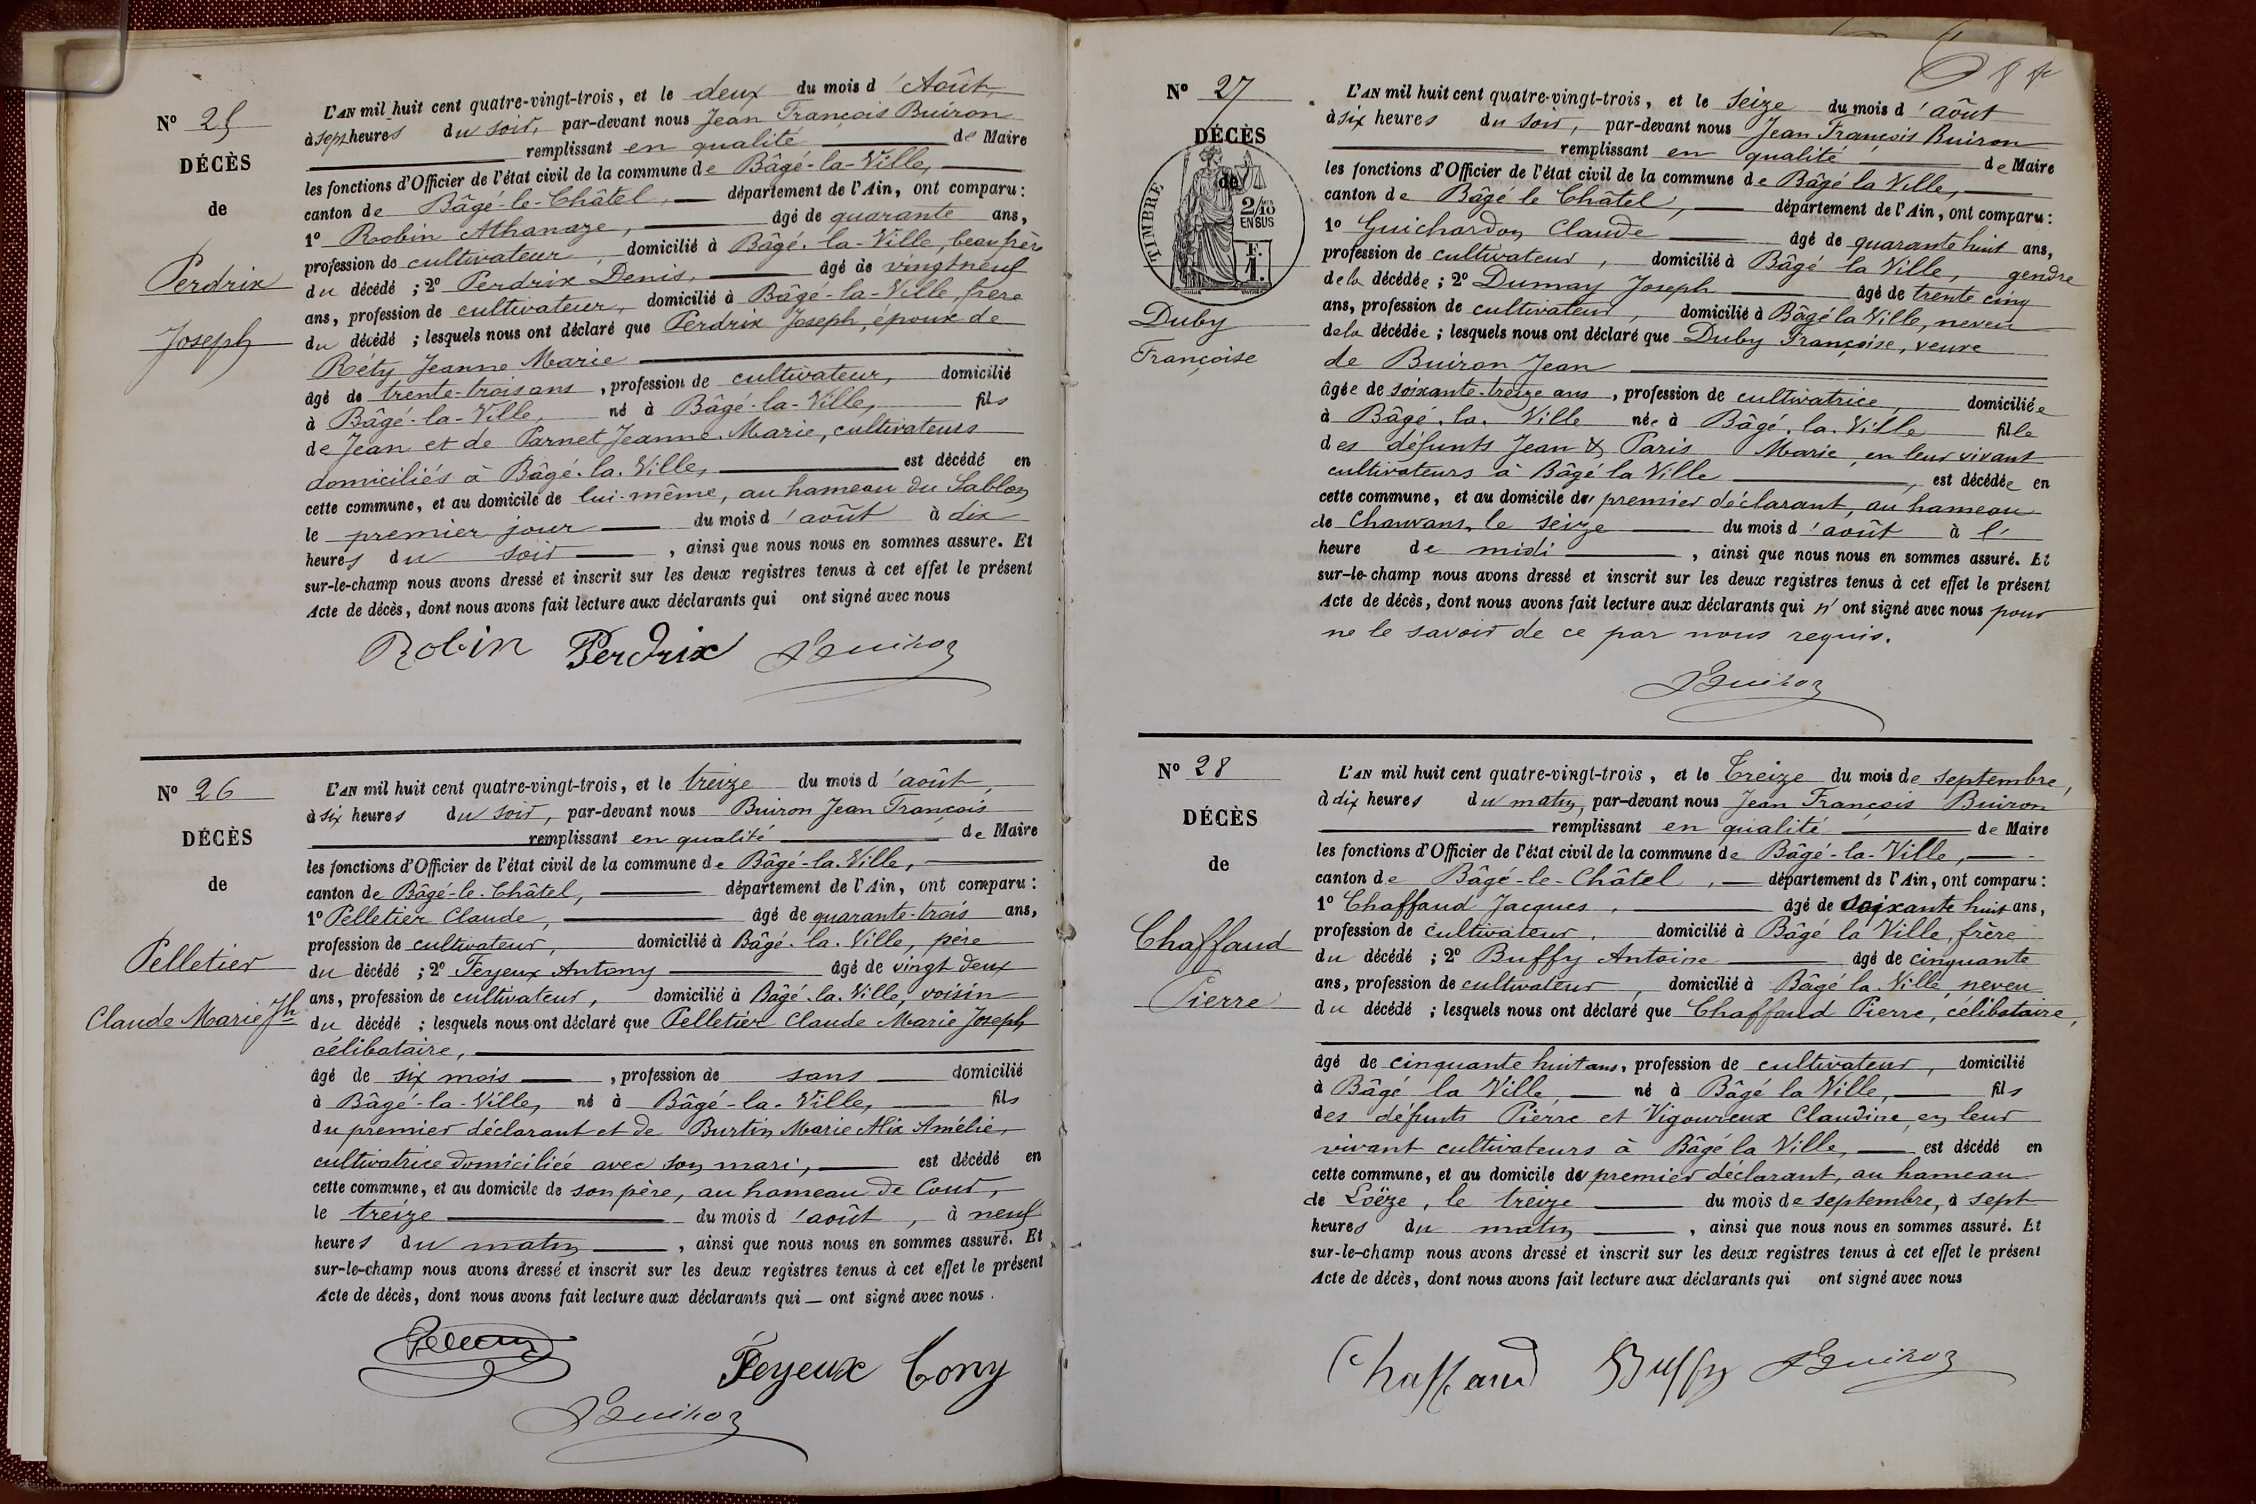 N° 25
DÉCÈS
de
Perdrix
Joseph
L'AN mil huit cent quatre-vingt-trois, et le deux du mois d'Août,
à sept heures du soir, par-devant nous Jean François Buiron
remplissant en qualité de Maire
les fonctions d'Officier de l'état civil de la commune de Bâgé-la-Ville,
canton de Bâgé-le-Châtel, département de l'Ain, ont comparu:
1° Robin Athanaze, âgé de quarante ans,
profession de cultivateur, domicilié à Bâgé-la-Ville, beau frère
du décédé; 2° Perdrix Denis, âgé de vingt neuf
ans, profession de cultivateur, domicilié à Bâgé-la-Ville, frère
du décédé; lesquels nous ont déclaré que Perdrix Joseph, époux de
Réty Jeanne Marie
âgé de trente-trois ans, profession de cultivateur, domicilié
à Bâgé-la-Ville, né à Bâgé-la-Ville, fils
de Jean et de Parnet Jeanne-Marie, cultivateurs
domiciliés à Bâgé-la-Ville, est décédé en
cette commune, et au domicile de lui-même, au hameau du Sablon
le premier jour du mois d'août à dix
heures du soir, ainsi que nous nous en sommes assuré. Et
sur-le-champ nous avons dressé et inscrit sur les deux registres tenus à cet effet le présent
Acte de décès, dont nous avons fait lecture aux déclarants qui ont signé avec nous
Robin Perdrix JBuiron
N° 26
DÉCÈS
de
Pelletier
Claude Marie Jh
L'AN mil huit cent quatre-vingt-trois, et le treize du mois d'août,
à six heures du soir, par-devant nous Buiron Jean François
remplissant en qualité de Maire
les fonctions d'Officier de l'état civil de la commune de Bâgé-la-Ville,
canton de Bâgé-le-Châtel, département de l'Ain, ont comparu:
1° Pelletier Claude, âgé de quarante-trois ans,
profession de cultivateur, domicilié à Bâgé-la-Ville, père
du décédé; 2° Feyeux Antony âgé de vingt deux
ans, profession de cultivateur, domicilié à Bâgé-la-Ville, voisin
du décédé; lesquels nous ont déclaré que Pelletier Claude Marie Joseph
célibataire,
âgé de six mois, profession de sans domicilié
à Bâgé-la-Ville, né à Bâgé-la-Ville, fils
du premier déclarant et de Burtin Marie Alix Amélie,
cultivatrice domiciliée avec son mari, est décédé en
cette commune, et au domicile de son père, au hameau de Cour,
le treize du mois d'août, à neuf
heures du matin, ainsi que nous nous en sommes assuré. Et
sur-le-champ nous avons dressé et inscrit sur les deux registres tenus à cet effet le présent
Acte de décès, dont nous avons fait lecture aux déclarants qui — ont signé avec nous.
Feyeux Tony
JBuiron
N° 27
DÉCÈS
de
TIMBRE
2/10 EN SUS
Duby
Françoise
L'AN mil huit cent quatre-vingt-trois, et le seize du mois d'août
à six heures du soir, par-devant nous Jean François Buiron
remplissant en qualité de Maire
les fonctions d'Officier de l'état civil de la commune de Bâgé la Ville,
canton de Bâgé le Châtel, département de l'Ain, ont comparu:
1° Guichardon Claude âgé de quarante huit ans,
profession de cultivateur, domicilié à Bâgé la Ville, gendre
de la décédée; 2° Dumay Joseph âgé de trente cinq
ans, profession de cultivateur, domicilié à Bâgé la Ville, neveu
de la décédée; lesquels nous ont déclaré que Duby Françoise, veuve
de Buiron Jean
âgée de soixante-treize ans, profession de cultivatrice, domiciliée
à Bâgé-la-Ville née à Bâgé-la-Ville fille
des défunts Jean & Paris Marie, en leur vivant
cultivateurs à Bâgé la Ville, est décédée en
cette commune, et au domicile du premier déclarant, au hameau
de Chauvans, le seize du mois d'août à l'
heure de midi, ainsi que nous nous en sommes assuré. Et
sur-le-champ nous avons dressé et inscrit sur les deux registres tenus à cet effet le présent
Acte de décès, dont nous avons fait lecture aux déclarants qui n'ont signé avec nous pour
ne le savoir de ce par nous requis.
JBuiron
N° 28
DÉCÈS
de
Chaffaud
Pierre
L'AN mil huit cent quatre-vingt-trois, et le Treize du mois de septembre,
à dix heures du matin, par-devant nous Jean François Buiron
remplissant en qualité de Maire
les fonctions d'Officier de l'état civil de la commune de Bâgé-la-Ville,
canton de Bâgé-le-Châtel, département de l'Ain, ont comparu:
1° Chaffaud Jacques, âgé de soixante huit ans,
profession de cultivateur, domicilié à Bâgé la Ville, frère
du décédé; 2° Buffy Antoine âgé de cinquante
ans, profession de cultivateur, domicilié à Bâgé la Ville, neveu
du décédé; lesquels nous ont déclaré que Chaffaud Pierre, célibataire,
âgé de cinquante huit ans, profession de cultivateur, domicilié
à Bâgé la Ville, né à Bâgé la Ville, fils
des défunts Pierre et Vigoureux Claudine, en leur
vivant cultivateurs à Bâgé la Ville, est décédé en
cette commune, et au domicile du premier déclarant, au hameau
de Loëze, le treize du mois de septembre, à sept
heures du matin, ainsi que nous nous en sommes assuré. Et
sur-le-champ nous avons dressé et inscrit sur les deux registres tenus à cet effet le présent
Acte de décès, dont nous avons fait lecture aux déclarants qui ont signé avec nous
Chaffaud Buffy JBuiron